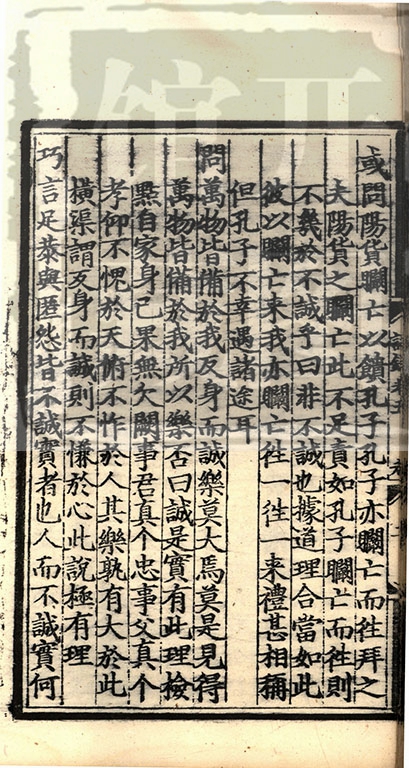 或問陽貨矙亡以饋孔子孔子亦矙亡而往拜之
夫陽貨之矙亡此不足責如孔子矙亡而往則
不幾於不誠乎曰非不誠也據道理合當如此
彼以矙亡來我亦矙亡往一往一來禮甚相稱
但孔子不幸遇諸途耳
問萬物皆備於我反身而誠樂莫大焉莫是見得
萬物皆備於我所以樂否曰誠是實有此理檢
點自家身已果無欠闕事君真个忠事父真个
孝仰不愧於天俯不怍於人其樂孰有大於此
橫渠謂反身而誠則不慊於心此說極有理
巧言足恭與匿怨皆不誠實者也人而不誠實何